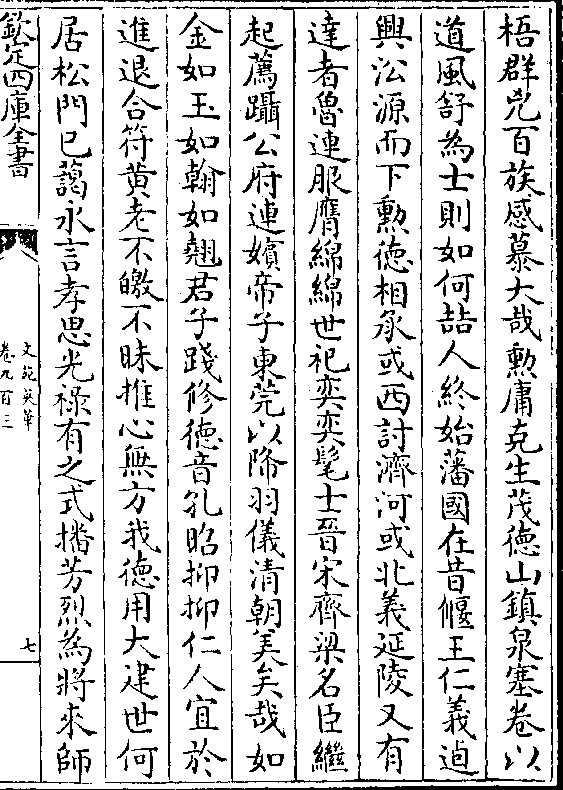 梧群兇百族感慕大哉勲庸克生茂德山鎮泉塞卷以
道風舒為士則如何喆人終始藩國在昔偃王仁義逌
興㳂源而下勲德相承或西討濟河或北義延陵又有
達者魯連服膺綿綿世祀奕奕髦士晉宋齊梁名臣繼
起薦躡公府連嬪帝子東莞以降羽儀清朝美矣哉如
金如玉如翰如翹君子踐修德音孔昭抑抑仁人宜於
進退合符黄老不皦不昧推心無方我德用大建世何
居松門已藹永言孝思光禄有之式播芳烈為將來師
欽定四庫全書
文苑英華
卷九百三
七